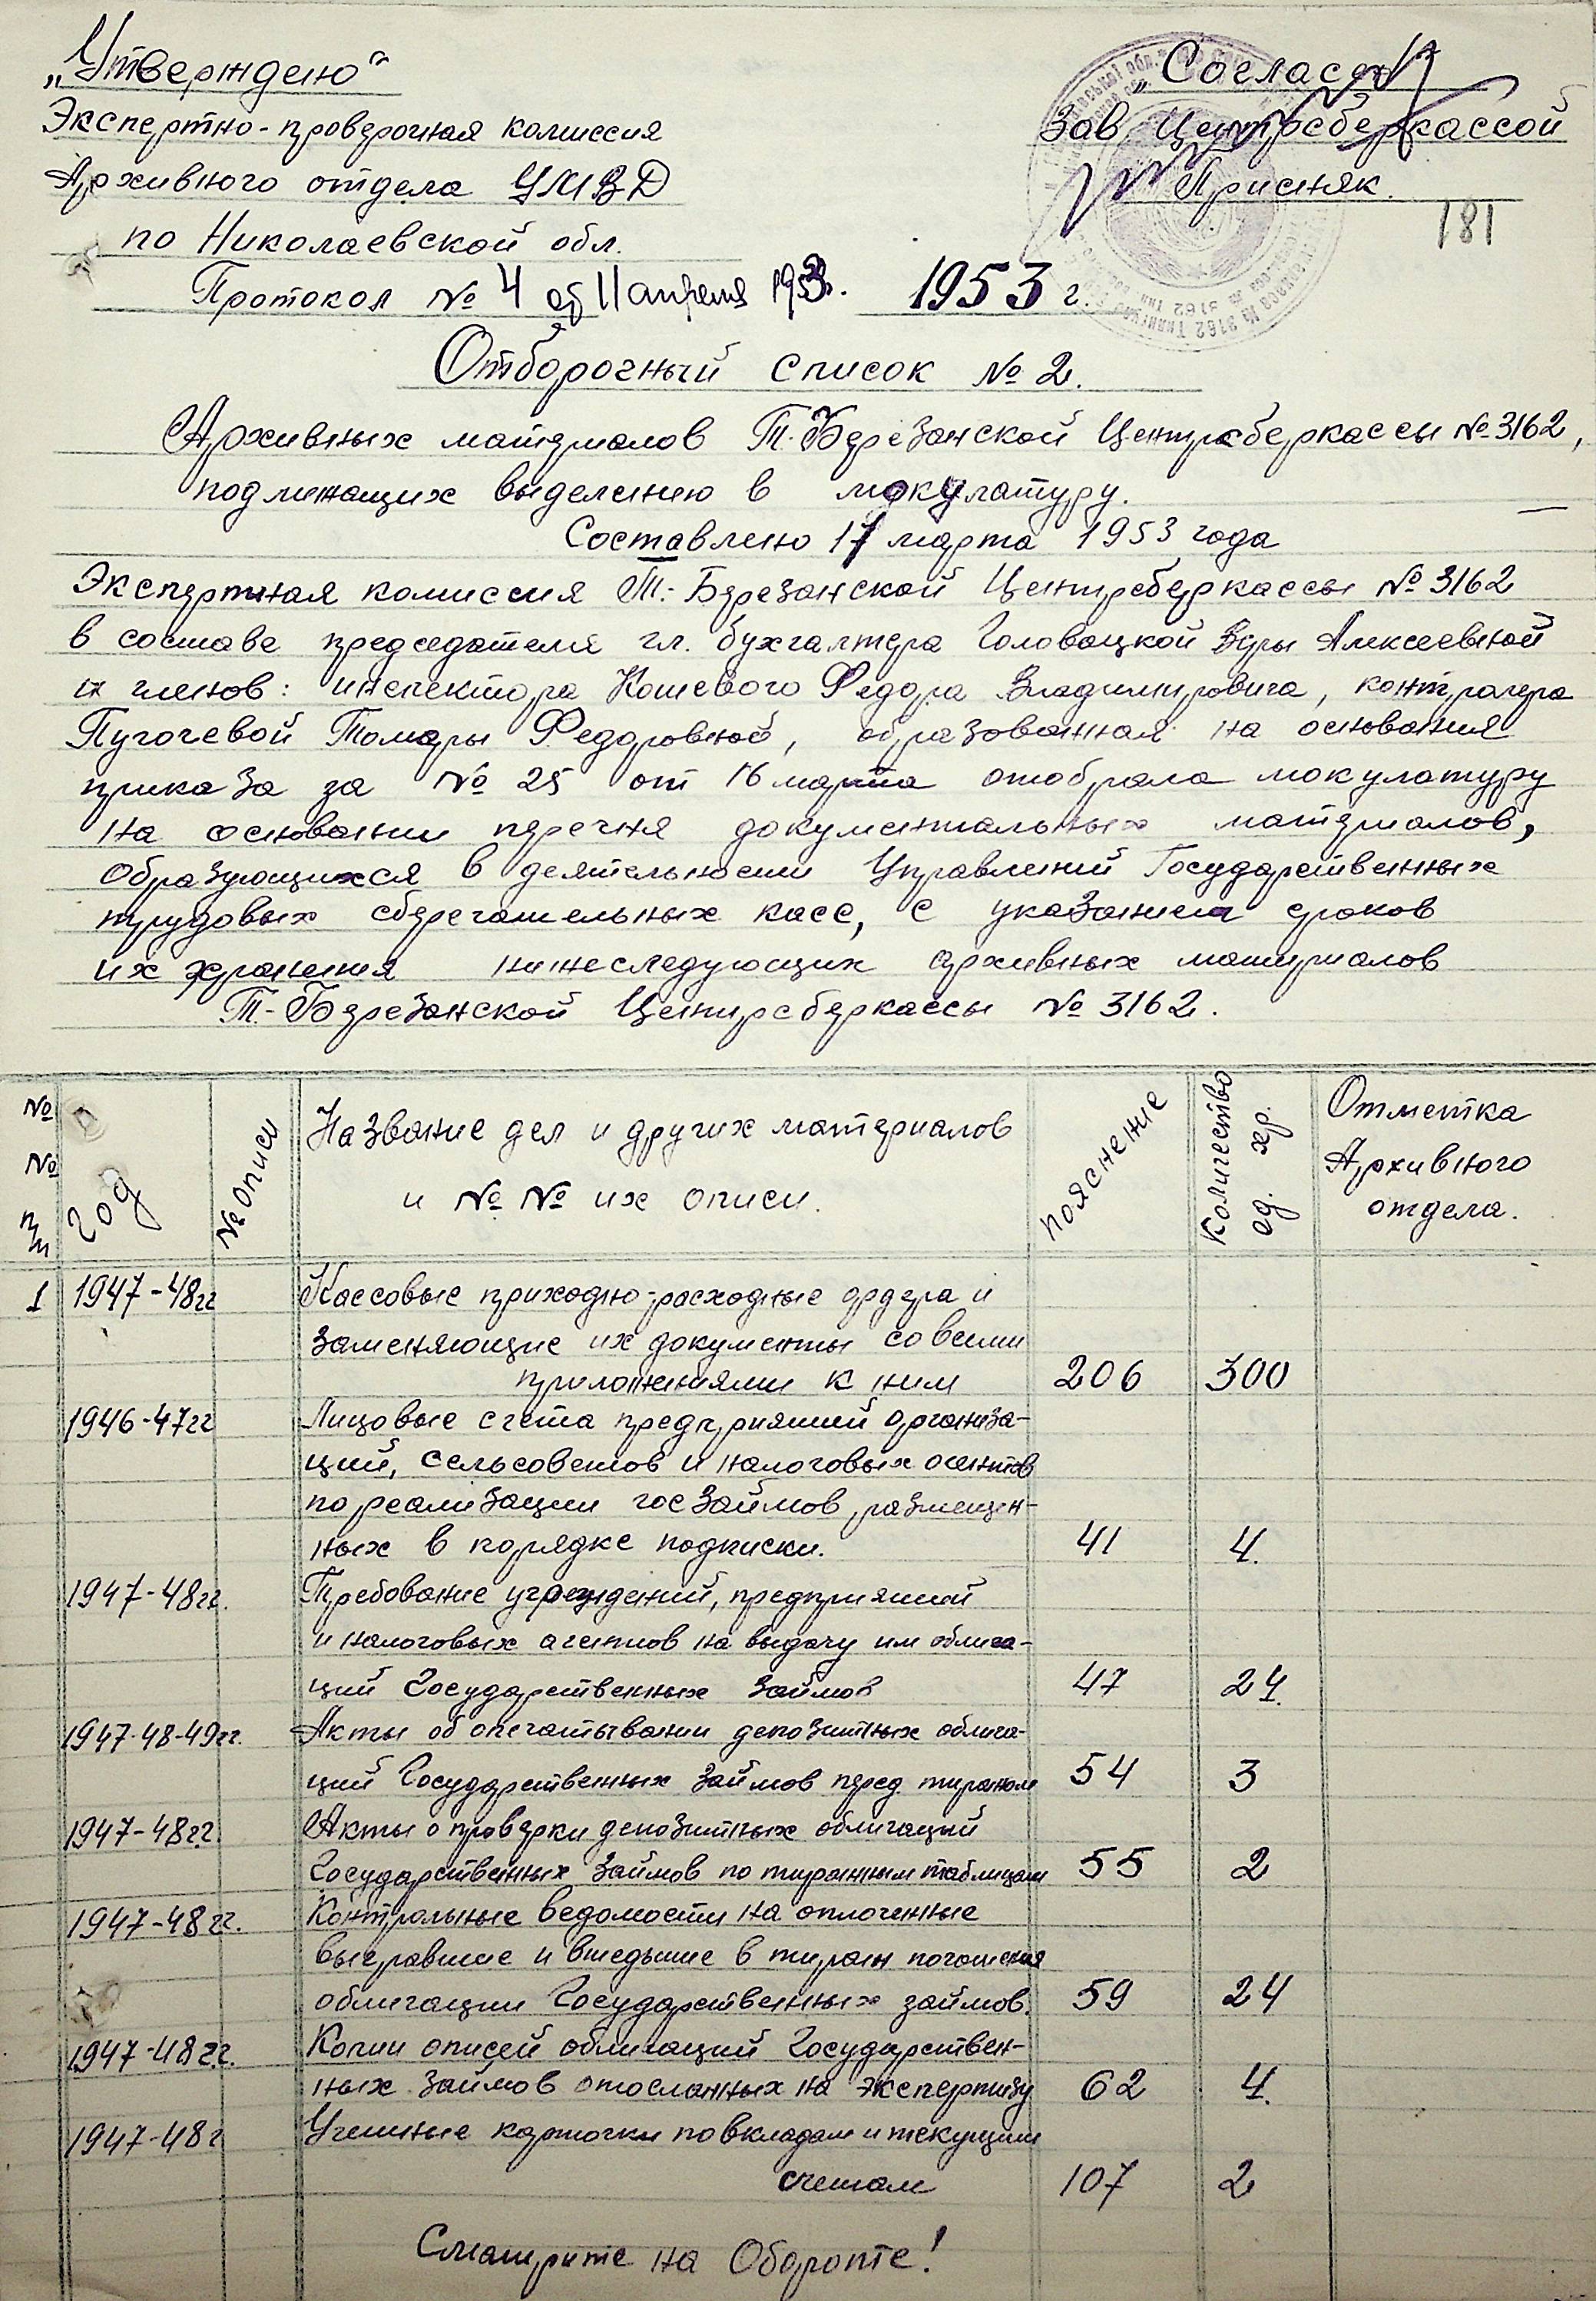 „Утверждено“
Экспертно-проверочная комиссия
Архивного отдела УМВД
по Николаевской обл.
Протокол № 4 от 11 апреля 1953г. 1953 г.
„Согласен“
Зав. Центрсберкассой
Присняк.
181
Отборочный список № 2.
Архивных материалов Т.Березанской Центрсберкассы № 3162,
подлежащих выделению в мокулатуру.
Составлено 17 марта 1953 года
Экспертная комиссия Т.-Березанской Центрсберкассы № 3162
в составе председателя гл. бухгалтера Головацкой Веры Алексеевной
и членов: инспектора Кошевого Федора Владимировича, контролера
Пугочевой Томары Федоровной, образованная на основания
приказа за № 25 от 16 марта отобрала мокулатуру
на основании перечня документальных материалов,
образующихся в деятельности Управлений Государственных
трудовых сберегательных касс, с указанием сроков
их хранения нижеследующих архивных материалов
Т.-Березанской Центрсберкассы № 3162.
№ № п/п Год № Описи Название дел и других материалов и № № их описи. пояснение Количество ед. хр. Отметка Архивного отдела.
1 1947-48гг Кассовые приходно-расходные ордера и
заменяющие их документы со всеми
приложениями к ним 206 300
1946-47гг Лицовые счета предприятий организа-
ций, сельсоветов и налоговых агентов
по реализации госзаймов, размещен-
ных в порядке подписки. 41 4.
1947-48гг. Требование учреждений, предприятий
и налоговых агентов на выдачу им облига-
ций Государственных займов 47 24.
1947-48-49гг. Акты об опечатывании депозитных облига-
ций Государственных займов перед тиражом 54 3
1947-48гг. Акты о проверки депозитных облигаций
Государственных займов по тиражным таблицам 55 2
1947-48гг. Контрольные ведомости на оплоченные
выгравшие и вшедшие в тираж погошения
облигации Государственных займов. 59 24
1947-48г.г. Копии описей облигаций Государствен-
ных займов отосланных на экспертизу 62 4.
1947-48г Учетные карточки по вкладам и текущим
счетам 107 2
Смотрите на Обороте!